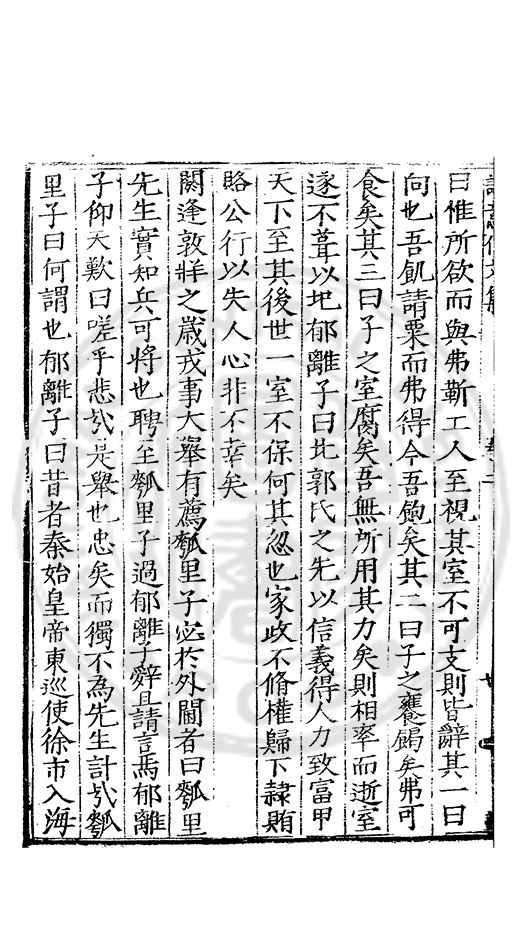 曰惟所欲而與弗靳工人至視其室不可支則皆辭其一曰
向也吾飢請粟而弗得今吾飽矣其二曰子之饔餲矣弗可
食矣其三曰子之室腐矣吾無所用其力矣則相率而逝室
遂不葺以圮郁離子曰此郭氏之先以信義得人力致富甲
天下至其後世一室不保何其忽也家政不脩權歸下隷賄
賂公行以失人心非不幸矣
閼逢敦牂之歲戎事大舉有薦瓠里子宓於外閫者曰瓠里
先生實知兵可將也聘至瓠里子過郁離子辭且請言焉郁離
子仰天歎曰嗟乎悲哉是舉也忠矣而獨不為先生計哉瓠
里子曰何謂也郁離子曰昔者秦始皇帝東巡使徐市入海